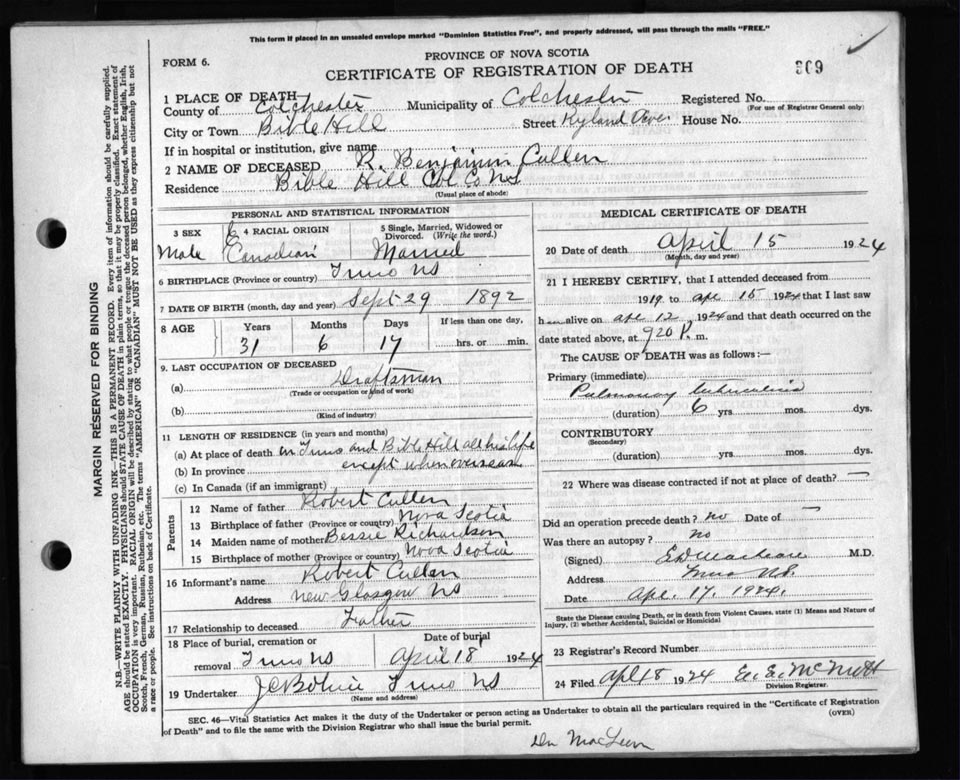 This form if placed in an unsealed envelope marked "Dominion Statistics Free", and properly addressed, will pass through the mails "FREE."
PROVINCE OF NOVA SCOTIA
FORM 6.
CERTIFICATE OF REGISTRATION OF DEATH
309
1 PLACE OF DEATH
County of Colchester Municipality of Colchester Registered No.
(For use of Registrar General only)
City or Town Bible Hill Street Ryland Ave. House No.
If in hospital or institution, give name
2 NAME OF DECEASED R. Benjamin Cullen
Residence Bible Hill Col Co NS
(Usual place of abode)
PERSONAL AND STATISTICAL INFORMATION
3 SEX 4 RACIAL ORIGIN 5 Single, Married, Widowed or Divorced. (Write the word.)
Male Canadian Married
6 BIRTHPLACE (Province or country) Truro NS
7 DATE OF BIRTH (month, day and year) Sept 29 1892
8 AGE Years Months Days If less than one day,
31 6 17 hrs. or min.
9. LAST OCCUPATION OF DECEASED
(a) Draftsman
(Trade or occupation or kind of work)
(b)
(Kind of industry)
11 LENGTH OF RESIDENCE (in years and months)
(a) At place of death in Truro and Bible Hill all his life
(b) In province except when overseas
(c) In Canada (if an immigrant)
Parents
12 Name of father Robert Cullen
13 Birthplace of father (Province or country) Nova Scotia
14 Maiden name of mother Bessie Richardson
15 Birthplace of mother (Province or country) Nova Scotia
16 Informant's name Robert Cullen
Address New Glasgow NS
17 Relationship to deceased Father
18 Place of burial, cremation or removal Truro NS Date of burial April 18 1924
19 Undertaker Truro NS
(Name and address)
MEDICAL CERTIFICATE OF DEATH
20 Date of death April 15 1924
(Month, day and year)
21 I HEREBY CERTIFY, that I attended deceased from
1919 to Apr 15 1924 that I last saw
h m alive on Apr 12 1924 and that death occurred on the
date stated above, at 920 P. m.
The CAUSE OF DEATH was as follows:
Primary (immediate)
Pulmonary tuberculosis
(duration) 6 yrs. mos. dys.
CONTRIBUTORY
(Secondary)
(duration) yrs. mos. dys.
22 Where was disease contracted if not at place of death?
Did an operation precede death? no Date of
Was there an autopsy? no
(Signed) M.D.
Address Truro N.S.
Date Apr. 17, 1924.
State the Disease causing Death, or in death from Violent Causes, state (1) Means and Nature of Injury, (2) whether Accidental, Suicidal or Homicidal
23 Registrar's Record Number
24 Filed Apl 18 1924 E. E. McNutt
Division Registrar.
SEC. 46—Vital Statistics Act makes it the duty of the Undertaker or person acting as Undertaker to obtain all the particulars required in the "Certificate of Registration
of Death" and to file the same with the Division Registrar who shall issue the burial permit.
(OVER)
MARGIN RESERVED FOR BINDING
N.B.—WRITE PLAINLY WITH UNFADING INK—THIS IS A PERMANENT RECORD. Every item of information should be carefully supplied.
AGE should be stated EXACTLY. PHYSICIANS should STATE CAUSE OF DEATH in plain terms, so that it may be properly classified. Exact statement of
OCCUPATION is very important. RACIAL ORIGIN will be described by stating to what people or tongue the deceased person belonged, whether English, Irish,
Scotch, French, German, Russian, Ruthenian, etc. The terms "AMERICAN" OR "CANADIAN" MUST NOT BE USED as they express citizenship but not
a race or people. See instructions on back of Certificate.